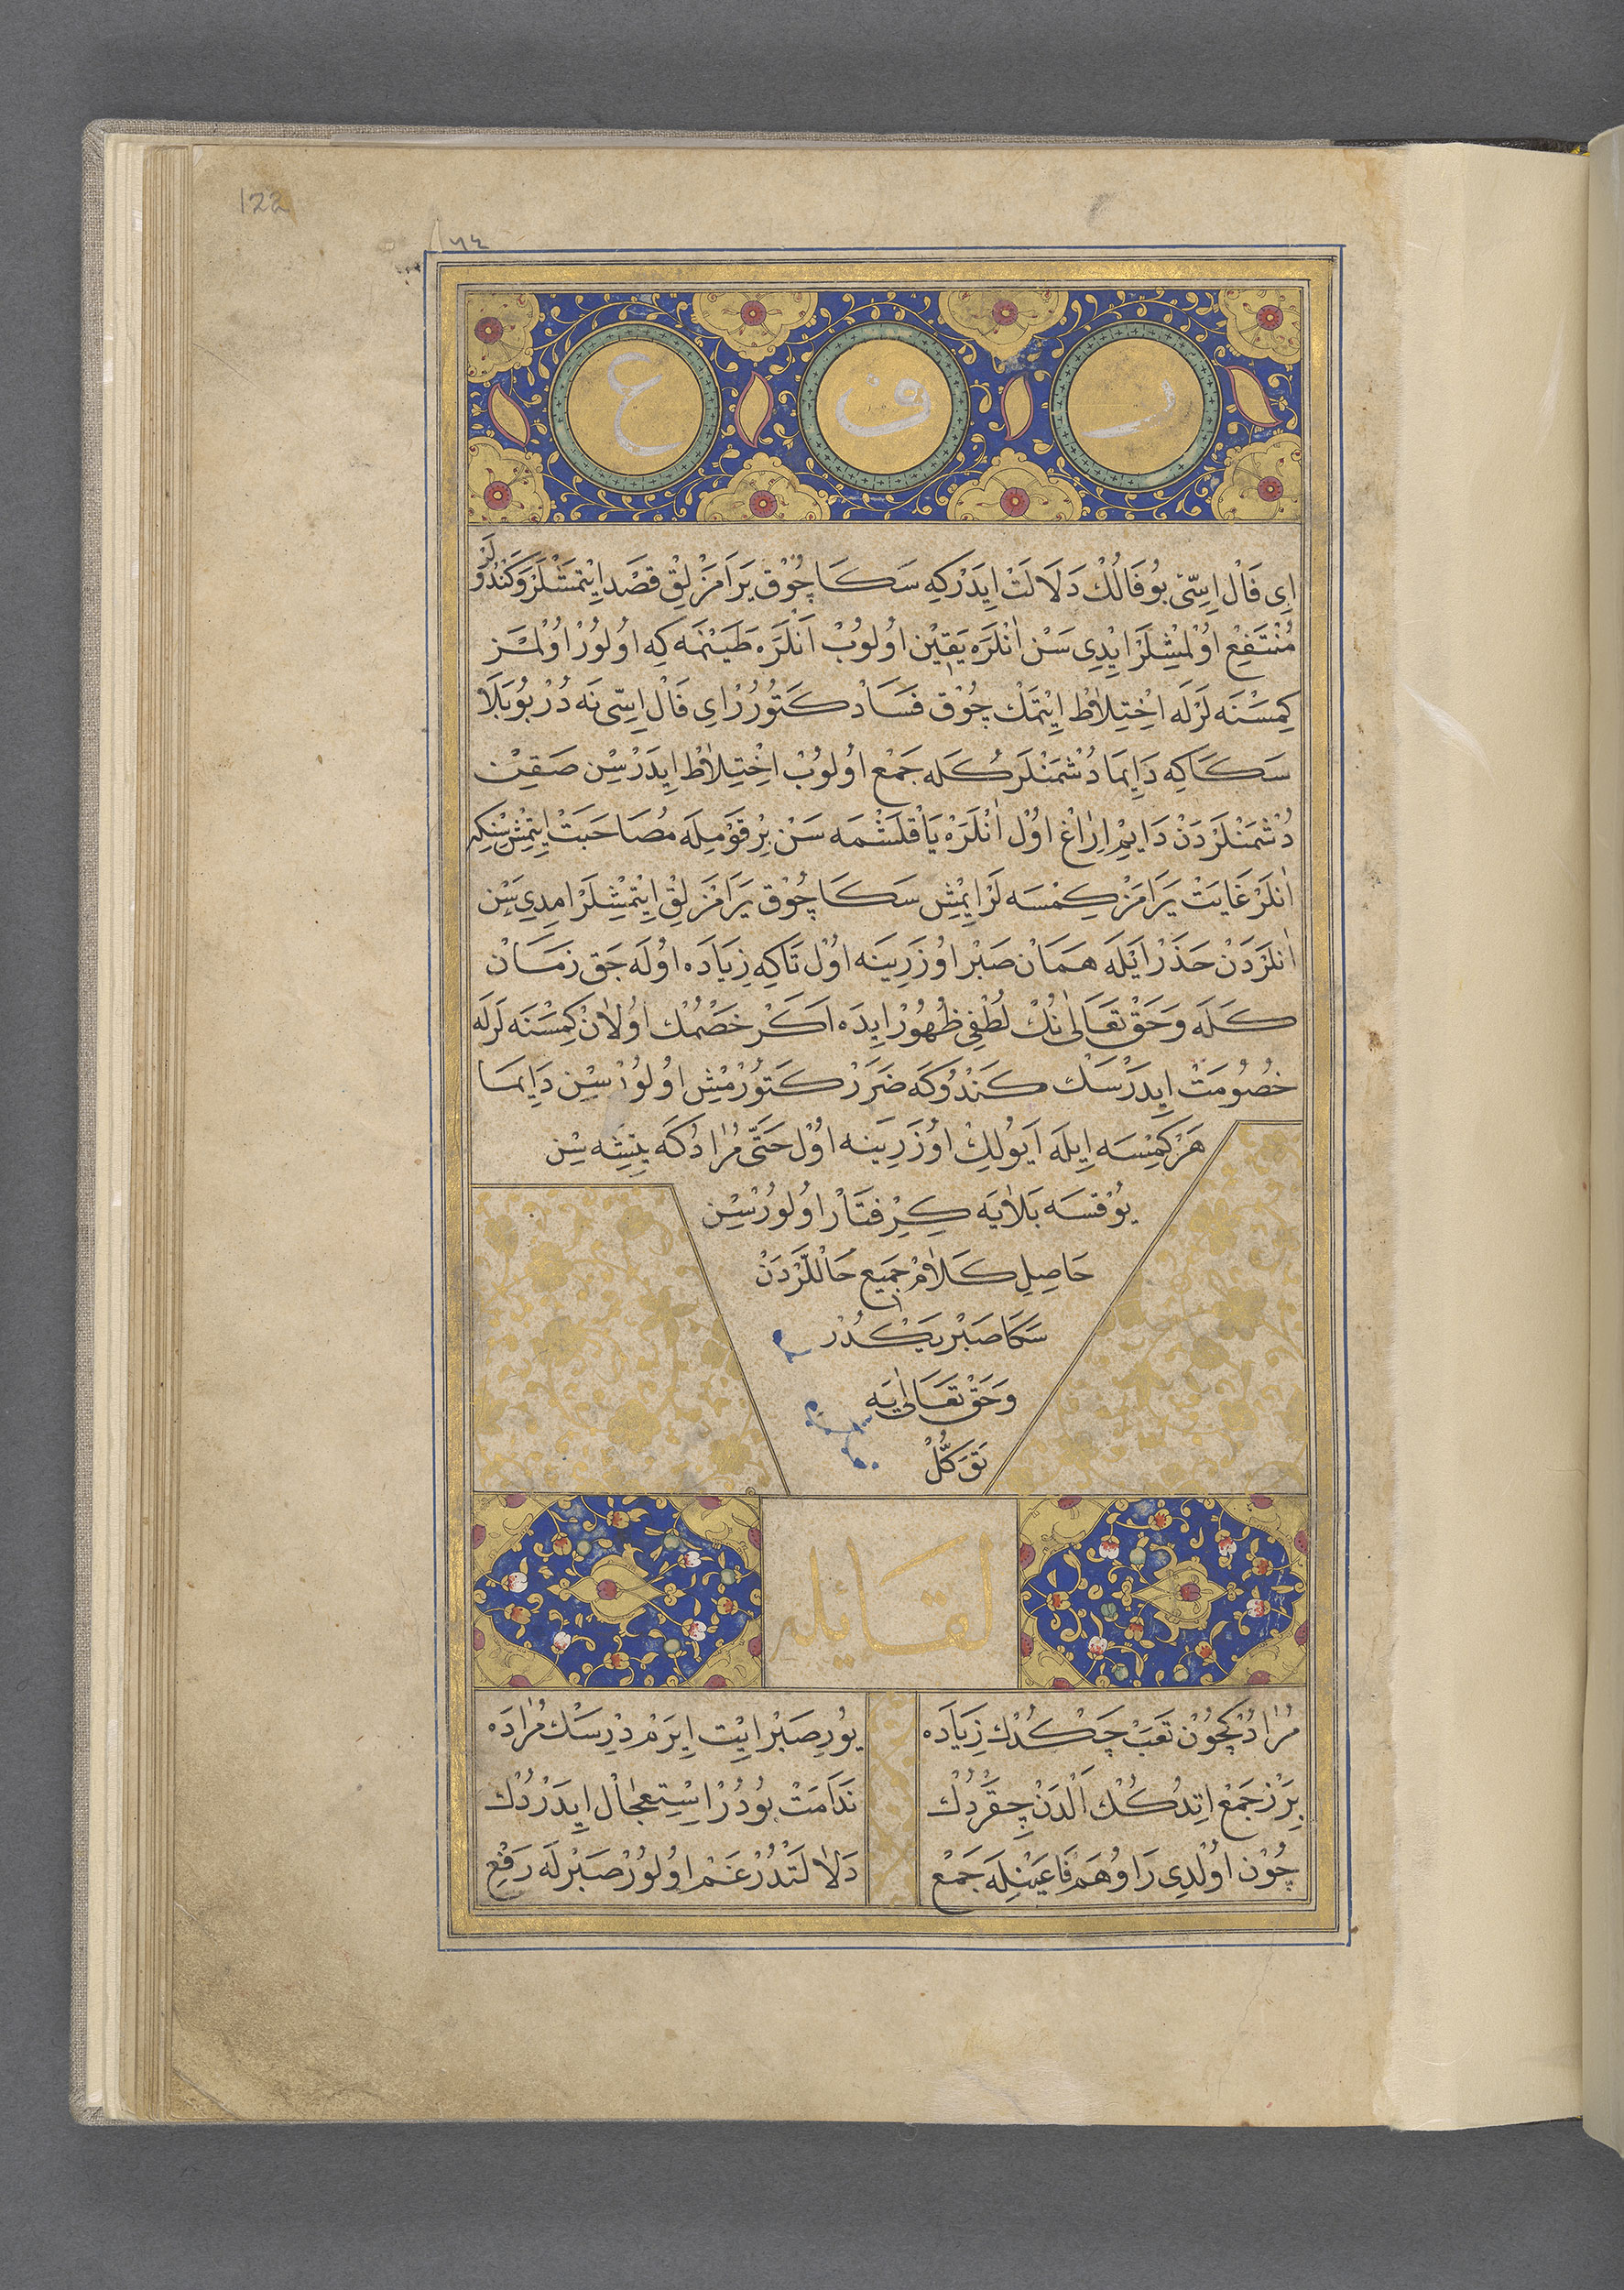 122
٦٤
ر ف ع
اِی فَالْ اِسِّیْ بُو فَالُكْ دَلَالَتْ اِیدَرْكِه سَكَا چُوْق یَرَامَزْلِقْ قَصْد اِیْتمَشْلَرْ وَكَنْدُولَرْ
مُنْتَفِعْ اوُلْمِشْلَرْ اِیْدِی سَنْ اٰنْلَرَه یَقِیْن اوُلوُبْ اَنْلَرَه طَیَنْمَه كِه اوُلوُرْ اوُلْمَزْ
كِمْسَنَه لَرْلَه اخْتِلَاطْ اِیْتمَكْ چُوْق فَسَادْ كَتوُرُرْ اِی فَالْ اِسِّی نَه دُرْ بُو بَلَا
سَكَا كِه دَایِمَا دُشْمَنْلَرْكَله جَمْع اوُلوُبْ اخْتِلَاطْ اِیدَرْسِنْ صَقِنْ
دُشْمَنْلَرْدَنْ دَایِمْ اِرَاغْ اوُلْ اٰنْلَرَه یَاقْلَشْمَه سَنْ بِرْ قَوْمِلَه مُصَاحَبَتْ اِیتمِشْسِنْكِه
اٰنْلَرْ غَایَتْ یَرَامَزْ كِمْسَه لَرْ اِیْمِشْ سَكَا چُوْق یَرَامَزْلِقْ اِیْتمِشْلَرْ اِمدِی سَنْ
اٰنْلَرْدَنْ حَذَرْ اَیْلَه هَمَانْ صَبْر اوُزَرِینَه اوُلْ تَاكِه زِیَادَه اوُلَه جَقْ زَمَانْ
كَلَه وَحَقْ تَعَالٰی نُكْ لُطْفِی ظُهُورْ اِیدَه اَكَرْ خَصْمُكْ اوُلَانْ كِمْسَنَه لَرْلَه
خُصُومَتْ اِیدَرْسَكْ كَنْدُوكَه ضَرَرْ كَتوُرْمِشْ اوُلوُرْسِنْ دَایِمَا
هَرْ كِمْسَه اِیلَه اَیُولِكْ اوُزَرِینَه اوُلْ حَتَّی مُرَادُكَه یِتِشَه سِنْ
یُوْقسَه بَلَایَه كِرِفتَارْ اوُلوُرْسِنْ
حَاصِلِ كَلَامْ جَمِیعِ حَالْلَرْدَنْ
سَكَا صَبْر یَكْدُرْ
وَحَقْ تَعَالٰی یَه
تَوَكُّلْ
لقائله
مُرَادُكْچوُنْ تَعَبْ چَكْدُكْ زِیَادَه
یُورِ صَبْر اِیْت اِیرَمْ دِرسَكْ مُرَادَه
بِرَزْ جَمْع اِتدُكُكْ اَلْدَنْ چِقَرْدُكْ
نَدَامَتْ بُودُرْ اسْتِعْجَالْ اِیدَرْدُكْ
چُونْ اوُلْدِی رَا وُ هَمْ فَا عَیْنِلَه جَمْع
دَلَالَتْدُرْ غَمْ اوُلوُرْ صَبْرلَه رَفْع